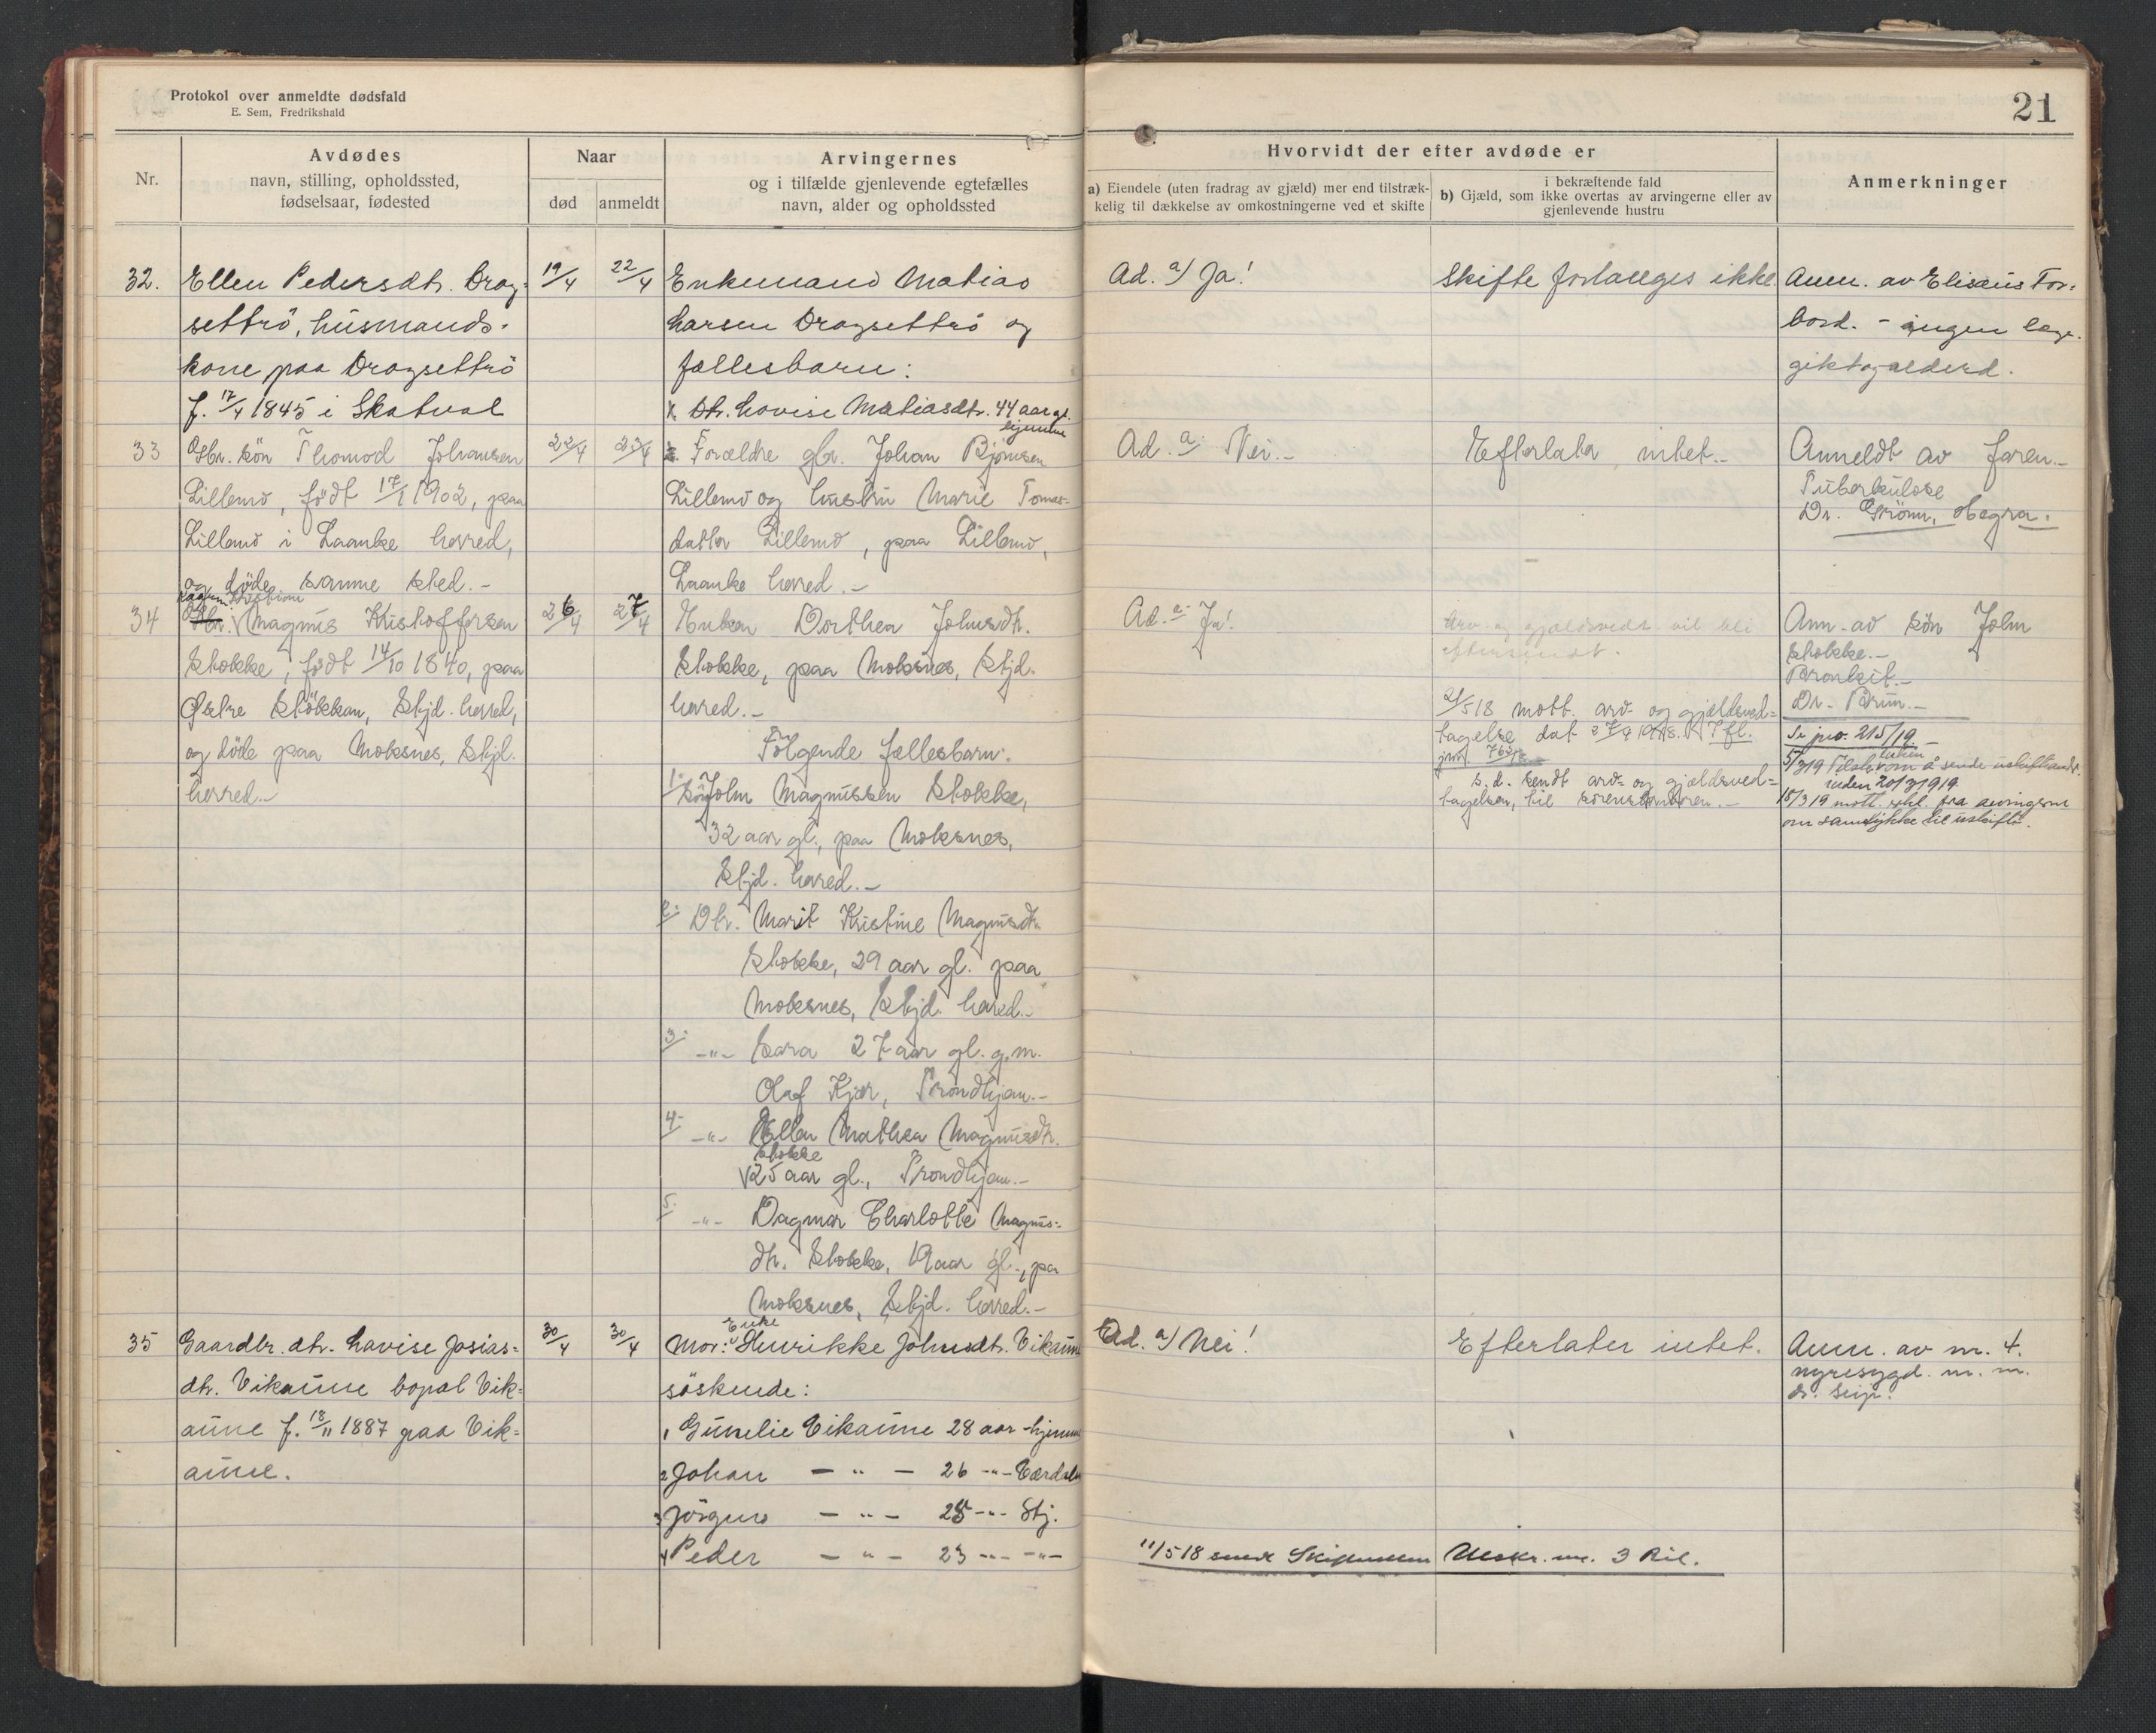 Protokol over anmeldte dødsfald
E. Sem, Fredrikshald
21
Nr.
Avdødes
navn, stilling, opholdssted,
fødselsaar, fødested
Naar
død
anmeldt
Arvingernes
og i tilfælde gjenlevende egtefælles
navn, alder og opholdssted
Hvorvidt der efter avdøde er
a) Eiendele (uten fradrag av gjæld) mer end tilstræk-
kelig til dækkelse av omkostningerne ved et skifte
i bekræftende fald
b) Gjæld, som ikke overtas av arvingerne eller av
gjenlevende hustru
Anmerkninger
32.
Ellen Pedersdtr. Drag-
settrö, husmands-
kone paa Dragsettrö
f. 17/4 1845 i Skatval
19/4
22/4
Enkemand Matias
Larsen Dragsettrö og
fællesbarn:
1. Dtr. Lovise Matiasdtr. 44 aar gl.
hjemme
Ad. a) Ja!
Skifte forlanges ikke.
Anm. av Elisæus For-
bord. - ingen læge.
gikt og alderd.
33
Gbr. sön Thomod Johansen
Lillemo, födt 17/1 1902, paa
Lillemo i Laanke herred,
og döde samme sted. -
22/4
23/4
Forældre gbr. Johan Björnsen
Lillemo og hustru Marie Tomas-
datter Lillemo, paa Lillemo,
Laanke herred. -
Ad. a. Nei. -
Efterlater intet. -
Anmeldt av faren. -
Tuberkulose
Dr. Grönn, Hegra.
34
Gbr. Magnus Kristoffersen
Stokke, födt 14/10 1840, paa
Østre Stökkan, Stjd. herred,
og döde paa Moksnes, Stjd.
herred. -
26/4
27/4
Enken Dorthea Johnsdtr.
Stokke, paa Moksnes, Stjd.
herred. -
Følgende fællesbarn:
1. Sön John Magnussen Stokke,
32 aar gl., paa Moksnes,
Stjd. herred. -
2. Dtr. Marit Kristine Magnusdtr.
Stokke, 29 aar gl. paa
Moksnes, Stjd. herred. -
3. -"- Sara 27 aar gl. g. m.
Olaf Kjær, Trondhjem. -
4. -"- Ellen Mathea Magnusdtr.
Stokke
25 aar gl., Trondhjem. -
5. -"- Dagmar Charlotte Magnus-
dtr. Stokke, 19 aar gl., paa
Moksnes, Stjd. herred. -
Ad. a. Ja!
Arv- og gjældsvedt. vil bli
eftersendt.
2/5 18 mott. arv- og gjældsved-
tagelse dat 27/4 1918. 1 fl.
s. d. sendt arv- og gjældsved-
tagelsen, til sorenskriveren. -
Anm. av sön John
Stokke. -
Bronkit. -
Dr. Brun. -
Se jno. 215/19
om å sende uskifteandr.
inden 20/3 1919.
18/3 19 mott. skr. fra arvingerne
om samtykke til uskifte.
35
Gaardbr. dtr. Lavise Josias-
dtr. Vikaune bopæl Vik-
aune f. 18/11 1887 paa Vik-
aune.
30/4
30/4
Enke
Mor: Henrikke Johnsdtr. Vikaune
söskende:
1 Gunelie Vikaune 28 aar hjemme
2 Johan - " - 26 -"- Værdalen
3 Jörgen - " - 25 -"- Stj.
4 Peder - " - 23 -"- -"-
Ad. a) Nei!
Efterlater intet.
Anm. av nr. 4.
nyresygd. m. m.
11/5 18 sendt Skifteretten Utskr. m. 3 Bil.